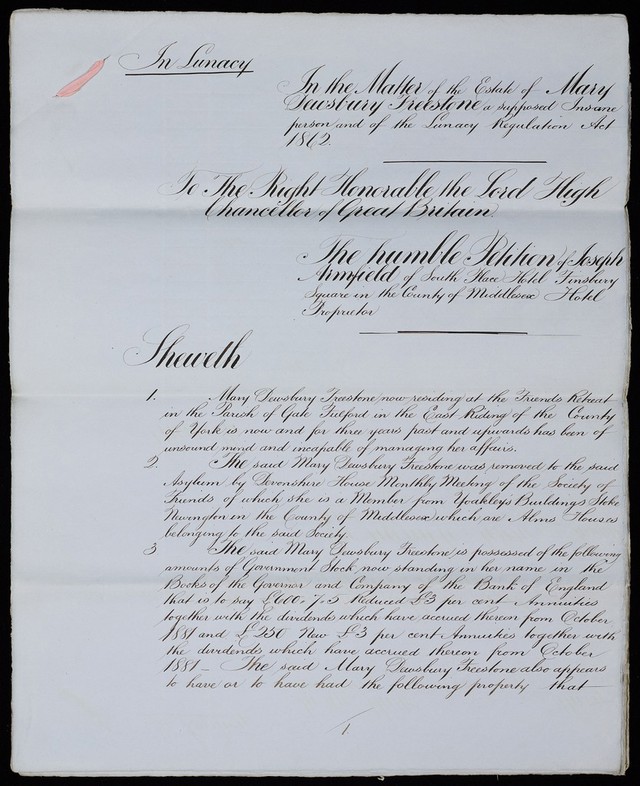 In Lunacy
In the Matter of the Estate of Mary
Dewsbury Freestone a supposed Insane
person and of the Lunacy Regulation Act
1862.
To The Right Honorable the Lord High
Chancellor of Great Britain
The humble Petition of Joseph
Armfield of South Place Hotel Finsbury
Square in the County of Middlesex Hotel
Proprietor
Sheweth
1. Mary Dewsbury Freestone now residing at the Friends Retreat
in the Parish of Gate Fulford in the East Riding of the County
of York is now and for three years past and upwards has been of
unsound mind and incapable of managing her affairs.
2. The said Mary Dewsbury Freestone was removed to the said
Asylum by Devonshire House Monthly Meeting of the Society of
Friends of which she is a Member from Yoakley's Buildings Stoke
Newington in the County of Middlesex which are Alms Houses
belonging to the said Society
3 The said Mary Dewsbury Freestone is possessed of the following
amounts of Government Stock now standing in her name in the
Books of the Governor and Company of the Bank of England
that is to say £600. 7. 5 Reduced £3 per cent Annuities
together with the dividends which have accrued thereon from October
1881 and £250 New £3 per cent Annuities together with
the dividends which have accrued thereon from October
1881 _ The said Mary Dewsbury Freestone also appears
to have or to have had the following property that
1